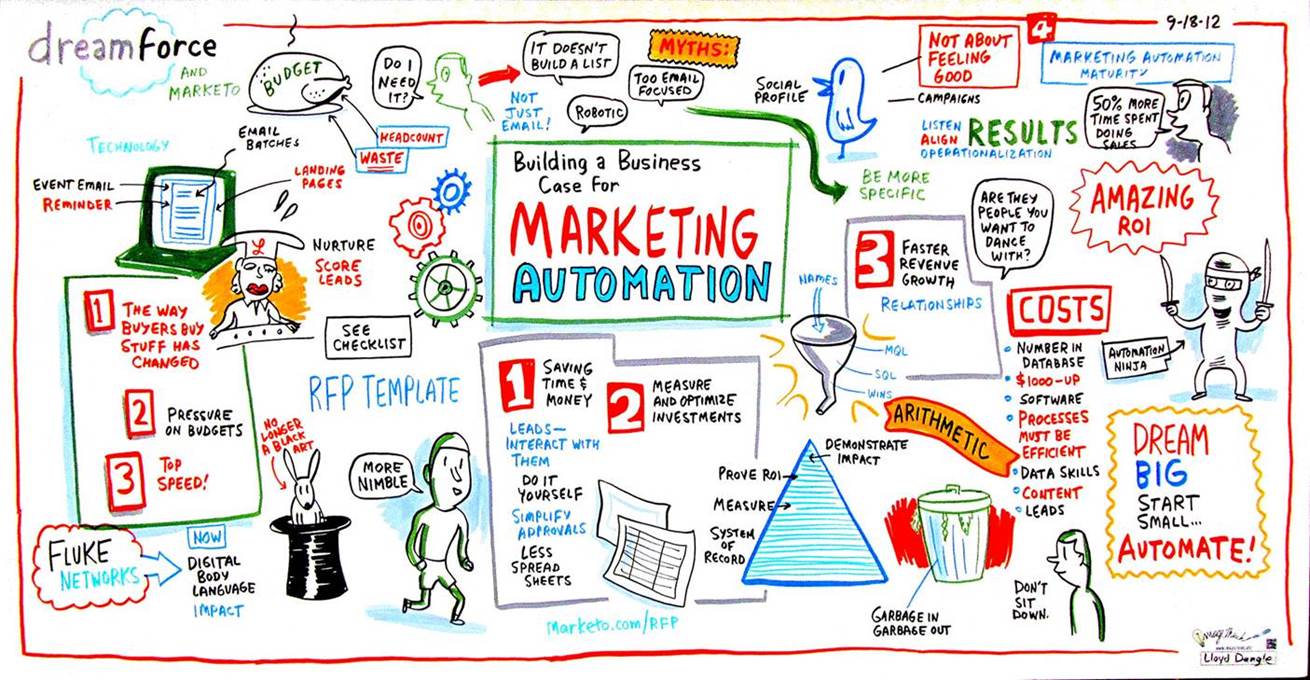 dreamforce
AND
MARKETO
BUDGET
HEADCOUNT
WASTE
DO I
NEED
IT?
IT DOESN'T
BUILD A LIST
NOT
JUST
EMAIL!
ROBOTIC
TOO EMAIL
FOCUSED
MYTHS:
SOCIAL
PROFILE
NOT ABOUT
FEELING
GOOD
CAMPAIGNS
LISTEN
ALIGN
OPERATIONALIZATION
RESULTS
BE MORE
SPECIFIC
4
9-18-12
MARKETING AUTOMATION
MATURITY
50% MORE
TIME SPENT
DOING
SALES
AMAZING
ROI
TECHNOLOGY
EMAIL
BATCHES
EVENT EMAIL
REMINDER
LANDING
PAGES
NURTURE
SCORE
LEADS
SEE
CHECKLIST
Building a Business
Case For
MARKETING
AUTOMATION
1
THE WAY
BUYERS BUY
STUFF HAS
CHANGED
2
PRESSURE
ON BUDGETS
3
TOP
SPEED!
FLUKE
NETWORKS
NOW
DIGITAL
BODY
LANGUAGE
IMPACT
RFP TEMPLATE
NO
LONGER
A BLACK
ART
MORE
NIMBLE
1
SAVING
TIME &
MONEY
LEADS—
INTERACT WITH
THEM
DO IT
YOURSELF
SIMPLIFY
APPROVALS
LESS
SPREAD
SHEETS
2
MEASURE
AND OPTIMIZE
INVESTMENTS
marketo.com/RFP
3
FASTER
REVENUE
GROWTH
RELATIONSHIPS
NAMES
MQL
SQL
WINS
ARE THEY
PEOPLE YOU
WANT TO
DANCE
WITH?
ARITHMETIC
DEMONSTRATE
IMPACT
PROVE ROI
MEASURE
SYSTEM
OF
RECORD
GARBAGE IN
GARBAGE OUT
COSTS
NUMBER IN
DATABASE
$1000-UP
SOFTWARE
PROCESSES
MUST BE
EFFICIENT
DATA SKILLS
CONTENT
LEADS
AUTOMATION
NINJA
DON'T
SIT
DOWN.
DREAM
BIG
START
SMALL...
AUTOMATE!
ImageThink
Lloyd Dangle